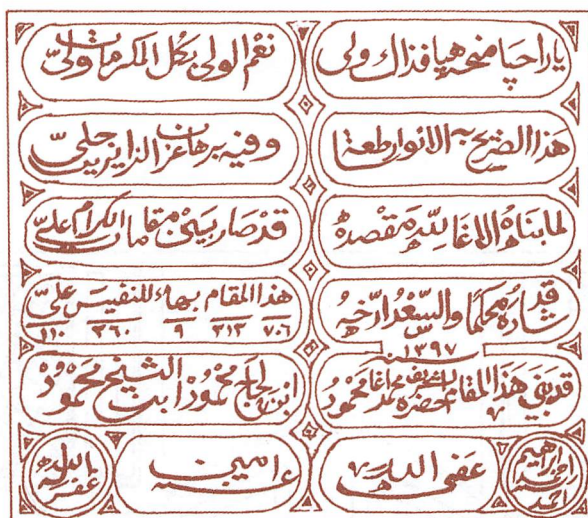 ياراجيا منحة هيا فذاك ولي نعم الولي بكل المكرمات ولي
هذا الضريح به الانوار وفيه برهان عز الزايرين جلي
لما بناه الاغا لله مقصده قد صار بين مقامات الكرام علي
قد شاده محكما والسعد ارخه هذا المقام بهاء للنفيس علي
٧٠٦ ٢١٢ ٩ ٢٦٠ ١١٠
سنة ١٢٩٧
قد بني هذا المقام الشريف حضرة محمد اغا محمود ابن الحاج محمود ابن الشيخ محمود
ابراهيم احمد عفى الله عنه امين غفر الله له